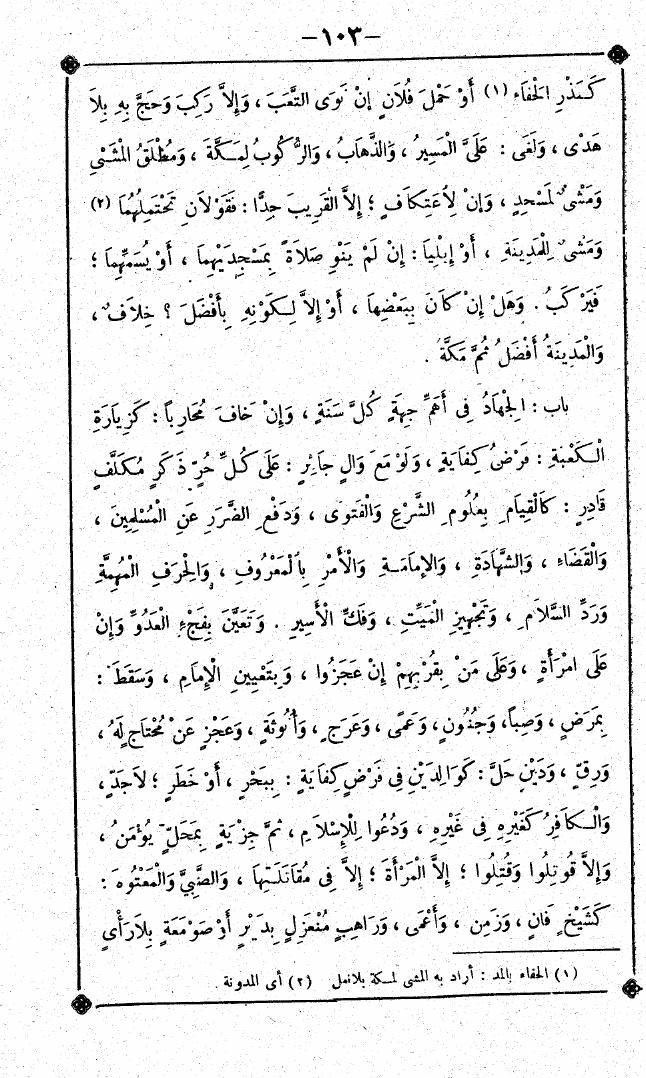 –١٠٣–
كَنَذْرِ الْحَفَاءِ (١) أَوْ حَمْلَ فُلَانٍ إِنْ نَوَى التَّعَبَ ، وَإِلاَّ رَكِبَ وَحَجَّ بِهِ بِلاَ
هَدْىٍ ، وَلَغَى : عَلَىَّ الْمَسِيرُ ، وَالذَّهَابُ ، وَالرُّكُوبُ لِمَكَّةَ ، وَمُطْلَقُ الْمَشْىِ
وَمَشْىٌ لِمَسْجِدٍ ، وَإِنْ لِاعْتِكَافٍ ؛ إِلاَّ الْقَرِيبَ جِدًّا : فَقَوْلاَنِ تَحْتَمِلُهُمَا (٢)
وَمَشْىٌ لِلْمَدِينَةِ ، أَوْ إِيْلِيَا : إِنْ لَمْ يَنْوِ صَلاَةً بِمَسْجِدَيْهِمَا ، أَوْ يُسَمِّهِمَا ؛
فَيَرْكَبُ . وَهَلْ إِنْ كَانَ بِبَعْضِهَا ، أَوْ إِلاَّ لِكَوْنِهِ بِأَفْضَلَ ؟ خِلاَفٌ ،
وَالْمَدِينَةُ أَفْضَلُ ثُمَّ مَكَّةُ .
باب : الْجِهَادُ فِى أَهَمِّ جِهَةٍ كُلَّ سَنَةٍ ، وَإِنْ خَافَ مُحَارِبًا : كَزِيَارَةِ
الْكَعْبَةِ : فَرْضُ كِفَايَةٍ ، وَلَوْ مَعَ وَالٍ جَائِرٍ : عَلَى كُلِّ حُرٍّ ذَكَرٍ مُكَلَّفٍ
قَادِرٍ : كَالْقِيَامِ بِعُلُومِ الشَّرْعِ وَالْفَتْوَى ، وَدَفْعِ الضَّرَرِ عَنِ الْمُسْلِمِينَ ،
وَالْقَضَاءِ ، وَالشَّهَادَةِ ، وَالإِمَامَةِ وَالْأَمْرِ بِالْمَعْرُوفِ ، وَالْحِرَفِ الْمُهِمَّةِ
وَرَدِّ السَّلاَمِ ، وَتَجْهِيزِ الْمَيِّتِ ، وَفَكِّ الْأَسِيرِ . وَتَعَيَّنَ بِفَجْءِ الْعَدُوِّ وَإِنْ
عَلَى امْرَأَةٍ ، وَعَلَى مَنْ بِقُرْبِهِمْ إِنْ عَجَزُوا ، وَبِتَعْيِينِ الْإِمَامِ ، وَسَقَطَ :
بِمَرَضٍ ، وَصِبًا، وَجُنُونٍ، وَعَمًى ، وَعَرَجٍ ، وَأُنُوثَةٍ ، وَعَجْزٍ عَنْ مُحْتَاجٍ لَهُ ،
وَرِقٍّ ، وَدَيْنٍ حَلَّ : كَوَالِدَيْنِ فِى فَرْضِ كِفَايَةٍ : بِبَحْرٍ ، أَوْ خَطَرٍ ؛ لاَجَدٍّ ،
وَالْكَافِرُ كَغَيْرِهِ فِى غَيْرِهِ ، وَدُعُوا لِلْإِسْلاَمِ ، ثُمَّ جِزْيَةٍ بِمَحَلٍّ يُؤْمَنُ ،
وَإِلاَّ قُوتِلُوا وَقُتِلُوا ؛ إِلاَّ الْمَرْأَةَ ؛ إِلاَّ فِى مُقَاتَلَتِهَا ، وَالصَّبِىَّ وَالْمَعْتُوهَ :
كَشَيْخٍ فَانٍ ، وَزَمِنٍ ، وَأَعْمَى ، وَرَاهِبٍ مُنْعَزِلٍ بِدَيْرٍ أَوْ صَوْمَعَةٍ بِلاَرَأْىٍ
(١) الحفاء بالمد : أراد به المشى لمكة بلانعل (٢) أى المدونة .